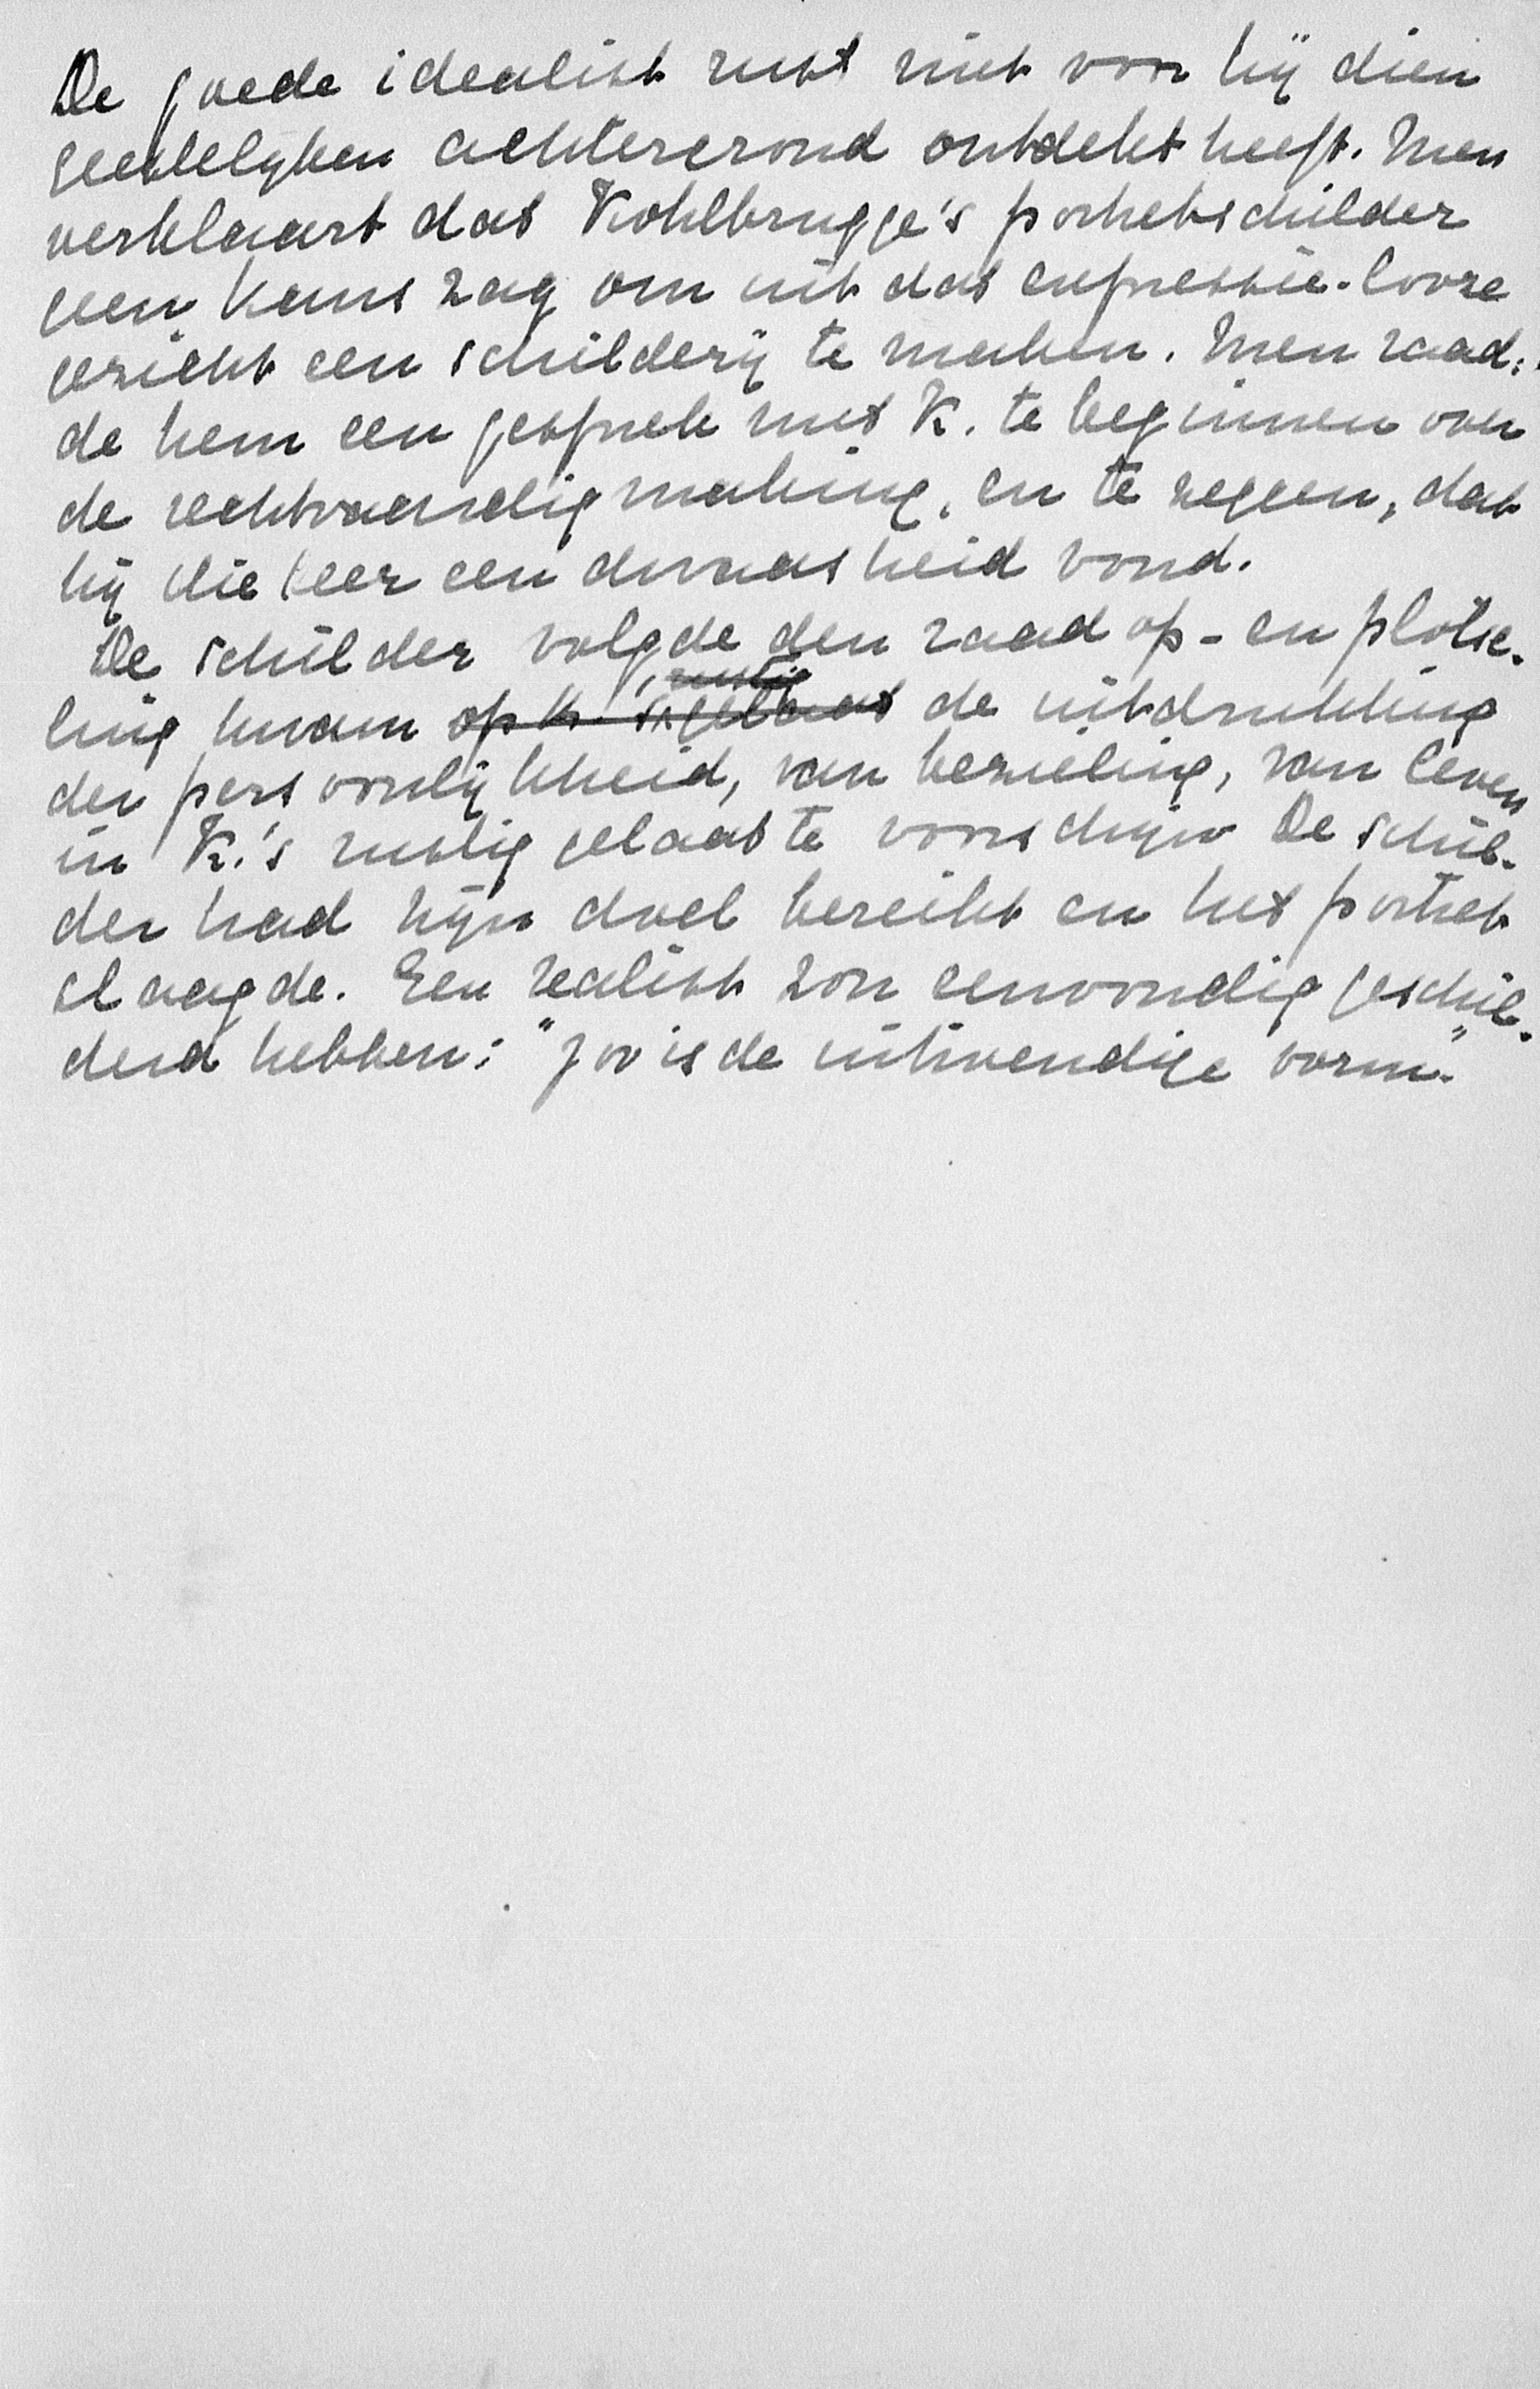 De goede idealist rust niet voor hij dien
geestelijken achtergrond ontdekt heeft. Men
verklaart dat Kohlbrugge's portretschilder
geen kans zag om uit dat expressie-looze
gezicht een schilderij te maken. Men raad:
de hem een gesprek met K. te beginnen over
de rechtvaardigmaking, en te zeggen, dat
hij die leer een dwaasheid vond.
De schilder volgde den raad op - en plotse-
rustig
ling kwam op K.'s gelaat de uitdrukking
der persoonlijkheid, van bezieling, van leven
in K.'s rustig gelaat te voorschijn De schil-
der had zijn doel bereikt en het portret
slaagde. Een realist zou eenvoudig geschil-
derd hebben: "zoo is de uitwendige vorm."